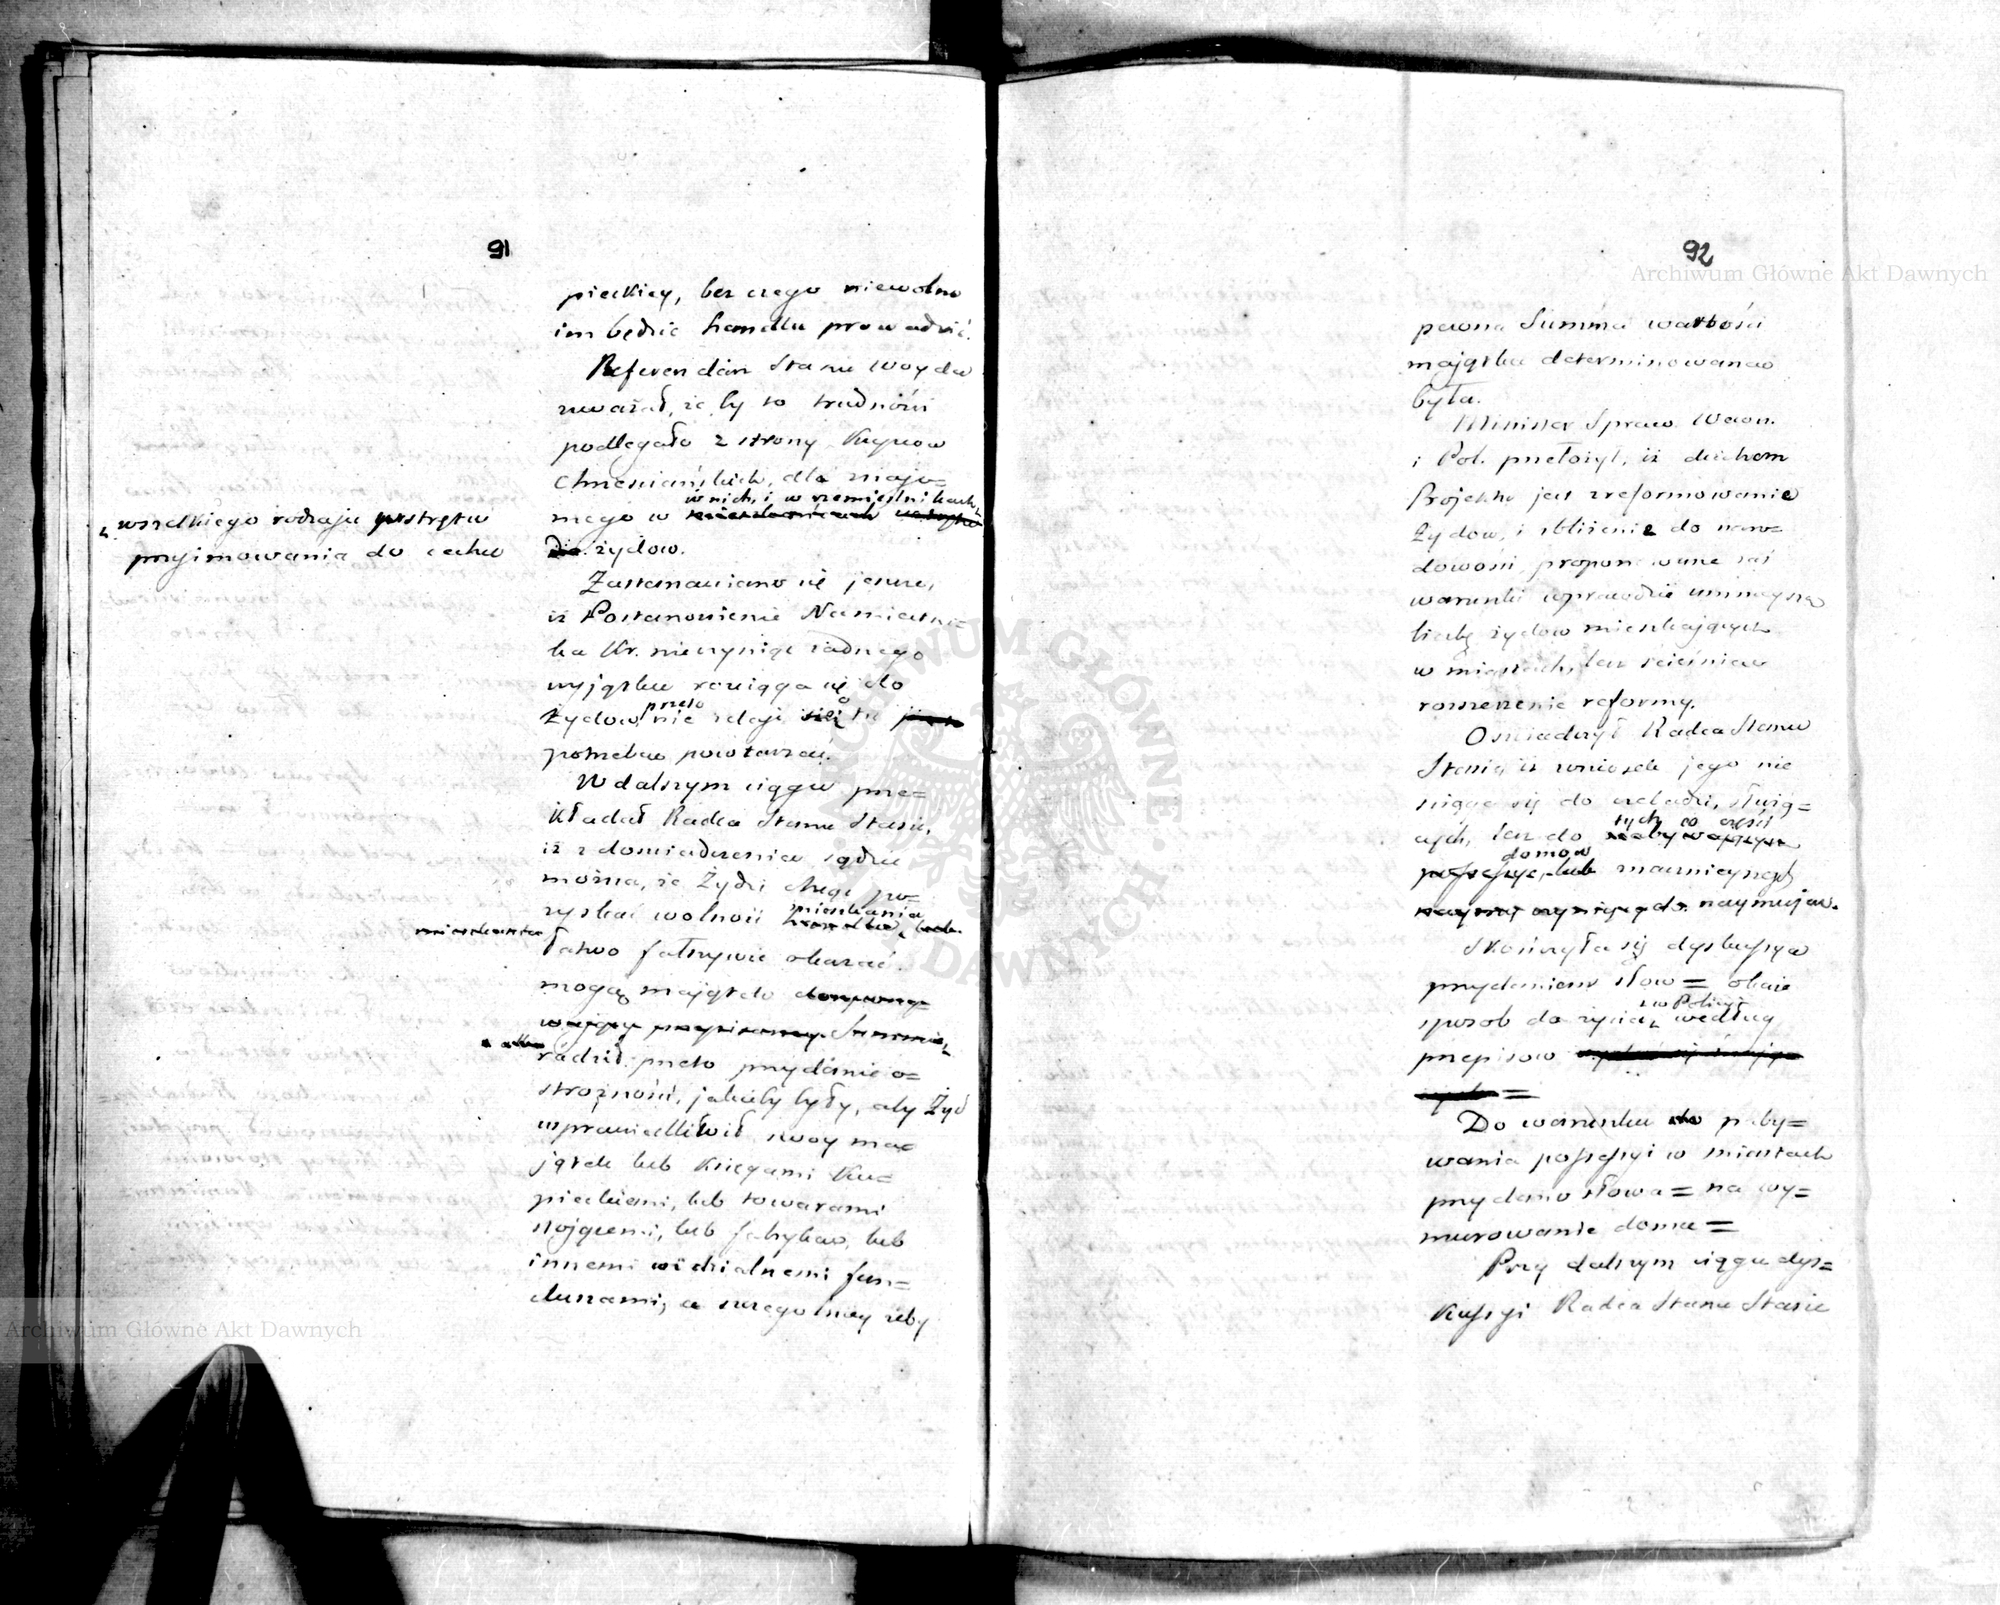 91
pieckiey, bez czego niewolno
im będzie handlu prowadzić.
Referendarz Stanu Woyda
uważał, że by to trudności
podlegało z strony Kupcow
Chrześciańskich, dla maią-
wnich, i w rzemieślnikach
mego w
żydow.
wszelkiego rodzaju wstrętu
przyimowania do cechu
Zastanawiano się jeszcze,
iż Postanowienie Namiestni-
ka Kr. nieczyniąc żadnego
wyjątku rozciąga się do
przeto
Żydow, nie zdaje się tu
potrzeba powtarzać.
W dalszym ciągu prze=
kładał Radca Stanu Stasic,
iż z doswiadczenia sądzić
można, że Żydzi chcąc po=
mieszkania
zyskać wolności
łatwo fałszywie okazać
mogą majątek
radził przeto przydanie o=
strożności, jakieby były, aby Żyd
usprawiedliwił swoy ma=
jątek lub Księgami Ku=
pieckiemi, lub towarami
stojącemi, lub fabryką, lub
innemi widzialnemi fun=
duszami, a szczegolniey żeby
92
pewna Summa wartości
majątku determinowana
była.
Minister Spraw. Wewn.
i Pol. przełożył, iż duchem
Projektu jest zreformowanie
Żydow, i zbliżenie do naro=
dowości, proponowane zaś
warunki wprawdzie umnieyszą
liczbę żydow mieszkających
w miastach, lecz ścieśnią
rozszerzenie reformy.
Oświadczył Radca Stanu
Stasic, iż wniosek jego nie
ściąga się do czeladzi, służą=
tych co części
cych, lecz do
domow
murowanych
naymują.
Skończyła się dyskussya
przydaniem słow = okaże
sposob do życia, według
przepisow
=
Do warunku naby=
wania possessyi w miastach
przydano słowa = na wy=
murowanie domu =
Przy dalszym ciągu dys=
kussyi Radca Stanu Stasic
Archiwum Główne Akt Dawnych
Archiwum Główne Akt Dawnych
ARCHIWUM GŁÓWNE AKT DAWNYCH